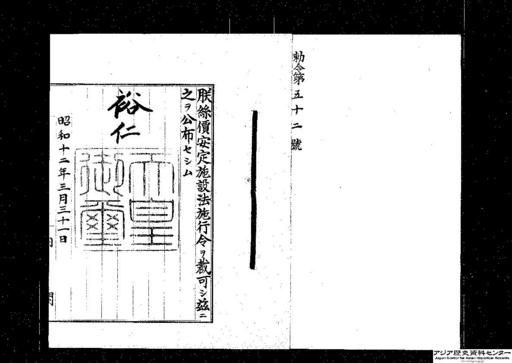 勅令第五十二號
朕絲價安定施設法施行令ヲ裁可シ茲ニ
之ヲ公布セシム
裕仁
天皇御璽
昭和十二年三月三十一日
アジア歴史資料センター
Japan Center for Asian Historical Records